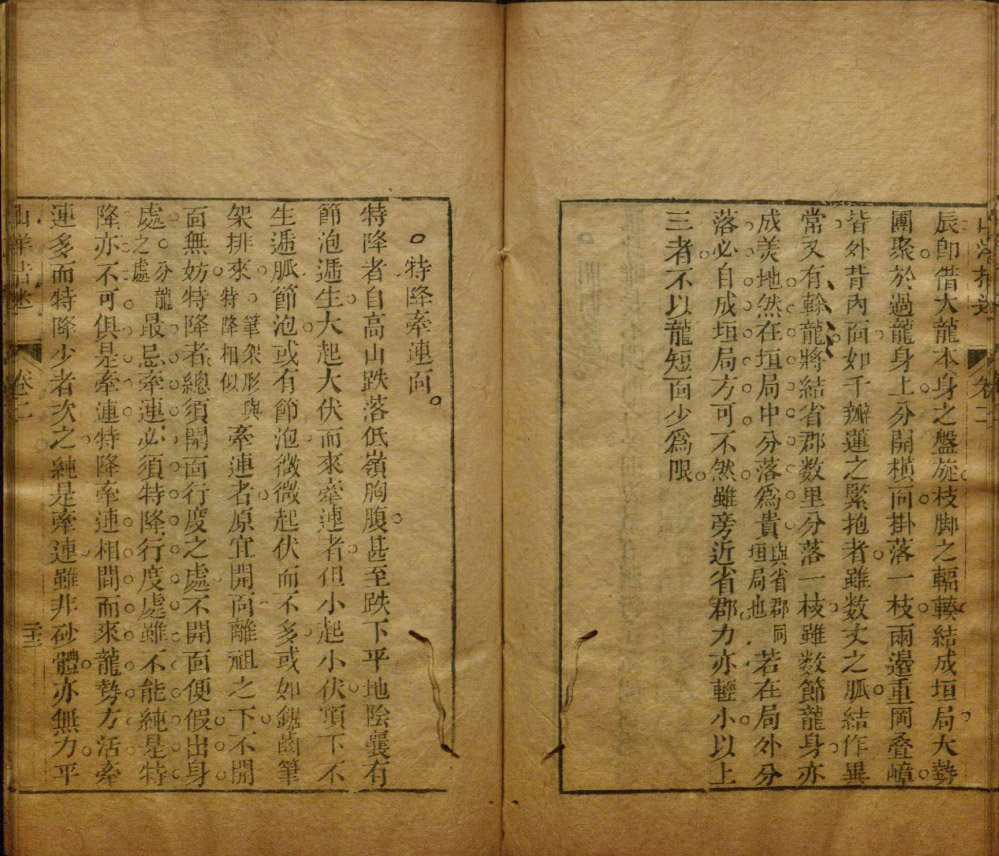 辰即借大龍本身之盤旋枝脚之輻輳結成垣局大勢
團聚於過龍身上分開橫向掛落一枝兩邊重岡疊嶂
皆外背內面如千瓣蓮之緊抱者雖数丈之脈結作異
常又有幹龍將結省郡数里分落一枝雖数節龍身亦
成美地然在垣局中分落爲貴與省郡同垣局也若在局外分
落必自成垣局方可不然雖旁近省郡力亦輕小以上
三者不以龍短面少爲限
特降牽連面
特降者自高山跌落低嶺胸腹甚至跌下平地陰囊有
節泡遞生大起大伏而來牽連者但小起小伏項下不
生遞脈節泡或有節泡微微起伏而不多或如鋸齒筆
架排來筆架形與特降相似牽連者原宜開面離祖之下不開
面無妨特降者總須開面行度之處不開面便假出身
處分龍之處最忌牽連必須特降行度處雖不能純是特
降亦不可俱是牽連特降牽連相間而來龍勢方活牽
連多而特降少者次之純是牽連雖非砂體亦無力平
卷二